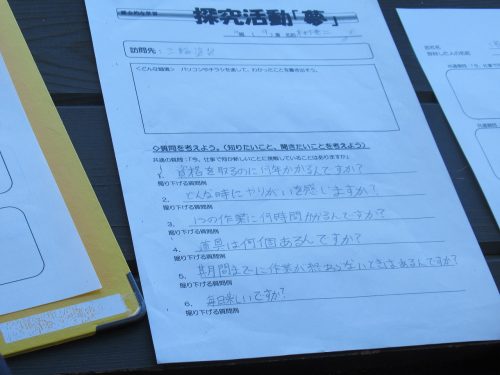 総合的な学習
探究活動「夢」
訪問先：三輪
＜どんな職業＞ パソコンやチラシを通して、わかったことを書き出そう。
◇質問を考えよう。（知りたいこと、聞きたいことを考えよう）
共通の質問：「今、仕事で何か新しいことに挑戦していることはありますか」
1. 資格を取るのに何年かかるんですか？
掘り下げる質問例
2. どんな時にやりがいを感じますか？
掘り下げる質問例
3. 1つの作業に何時間かかるんですか？
掘り下げる質問例
4. 道具は何個あるんですか？
掘り下げる質問例
5. 期間までに作業が終わらないときはあるんですか？
掘り下げる質問例
6. 毎日楽しいですか？
掘り下げる質問例